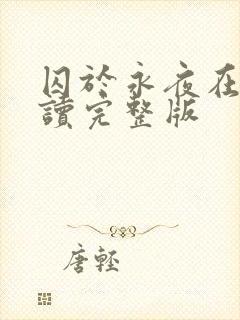 囚於永夜在
讀完整版
唐輕